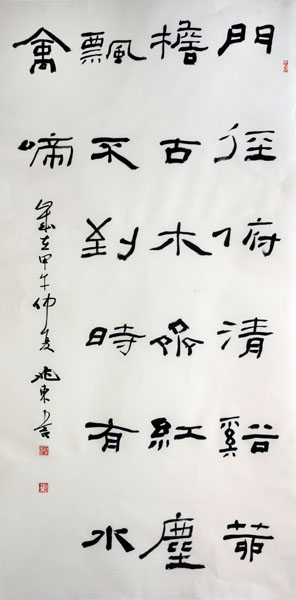 門徑俯清谿茆
檐古木齊紅塵
飄不到時有水
禽啼
歲在甲午仲夏 兆東書